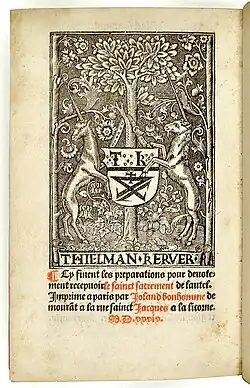 T K
THIELMAN·KERVER·
Cy finent les preparations pour deuote
ment recepuoir le sainct sacrement de lautel.
Imprime a paris par Yoland bonhomme de
mourāt a la rue sainct Jacques a la licorne.
M.D.